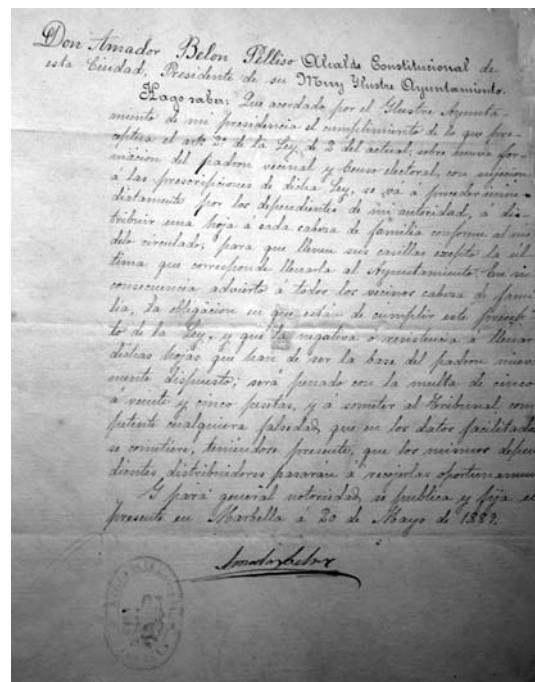 Don Amador Belon Pelliso Alcalde Constitucional de
esta Ciudad, Presidente de su Muy Ilustre Ayuntamiento.
Hago saber: Que acordado por el Ilustre Ayunta-
miento de mi presidencia el cumplimiento de lo que pre-
ceptua el artº 2º de la Ley, de 2 del actual, sobre nueva for-
macion del padron vecinal y Censo electoral, con sujecion
á las prescripciones de dicha Ley, se va á proceder inme-
diatamente por los dependientes de mi autoridad, a dis-
tribuir una hoja á cada cabeza de familia conforme al mo-
delo circulado, para que llenen sus casillas excepto la úl-
tima que corresponde llenarla al Ayuntamiento. En su
consecuencia advierto á todos los vecinos cabeza de fami-
lia, la obligacion en que están de cumplir este precep-
to de la Ley, y que la negativa o resistencia á llenar
dichas hojas que han de ser la base del padron nueva-
mente dispuesto; será penado con la multa de cinco
á veinte y cinco pesetas, y á someter al Tribunal com
petente cualquiera falsedad que en los datos facilitados
se cometiere, teniendose presente, que los mismos depen
dientes distribuidores pasarán á recojerlas oportunamen
Y para general notoriedad, se publica y fija el
presente en Marbella á 20 de Mayo de 1889.
Amador Belon